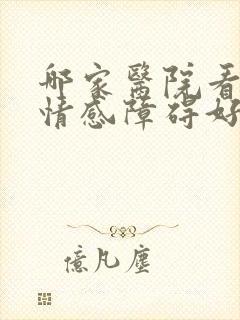 哪家醫院看
情感障碍好
億凡塵